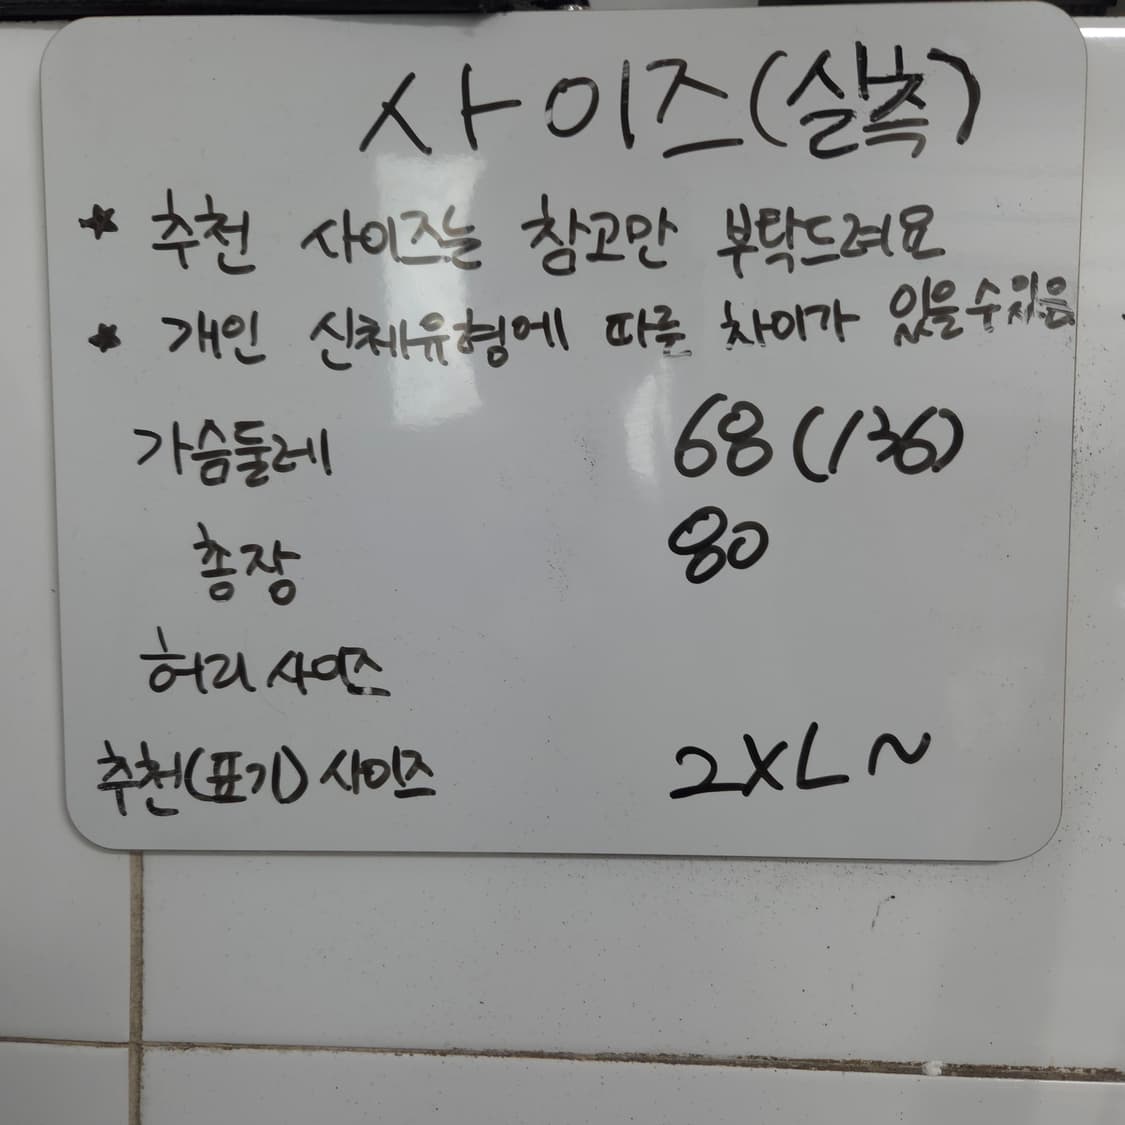 사이즈(실측)
★ 추천 사이즈는 참고만 부탁드려요
★ 개인 신체유형에 따른 차이가 있을수있음
가슴둘레 68(136)
총장 80
허리 사이즈
추천(표기) 사이즈 2XL ~